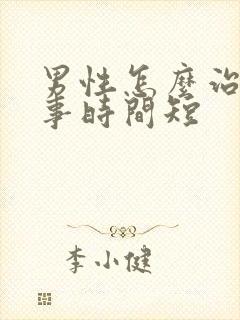 男性怎麼治
事時間短
李小健